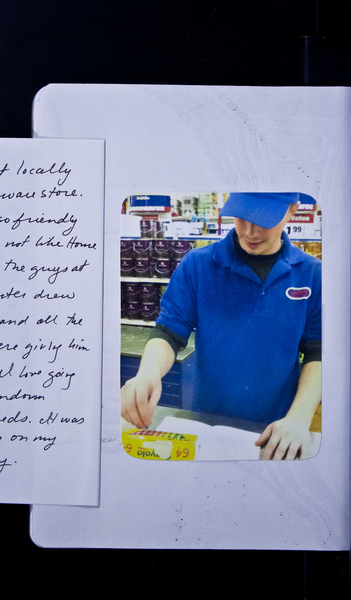 t locally
ware store.
so friendly
not like Home
the guys at
nter drew
and all the
ere giving him
I love going
ndom
eds. It was
on my
y.
1.99
Value
64
yola